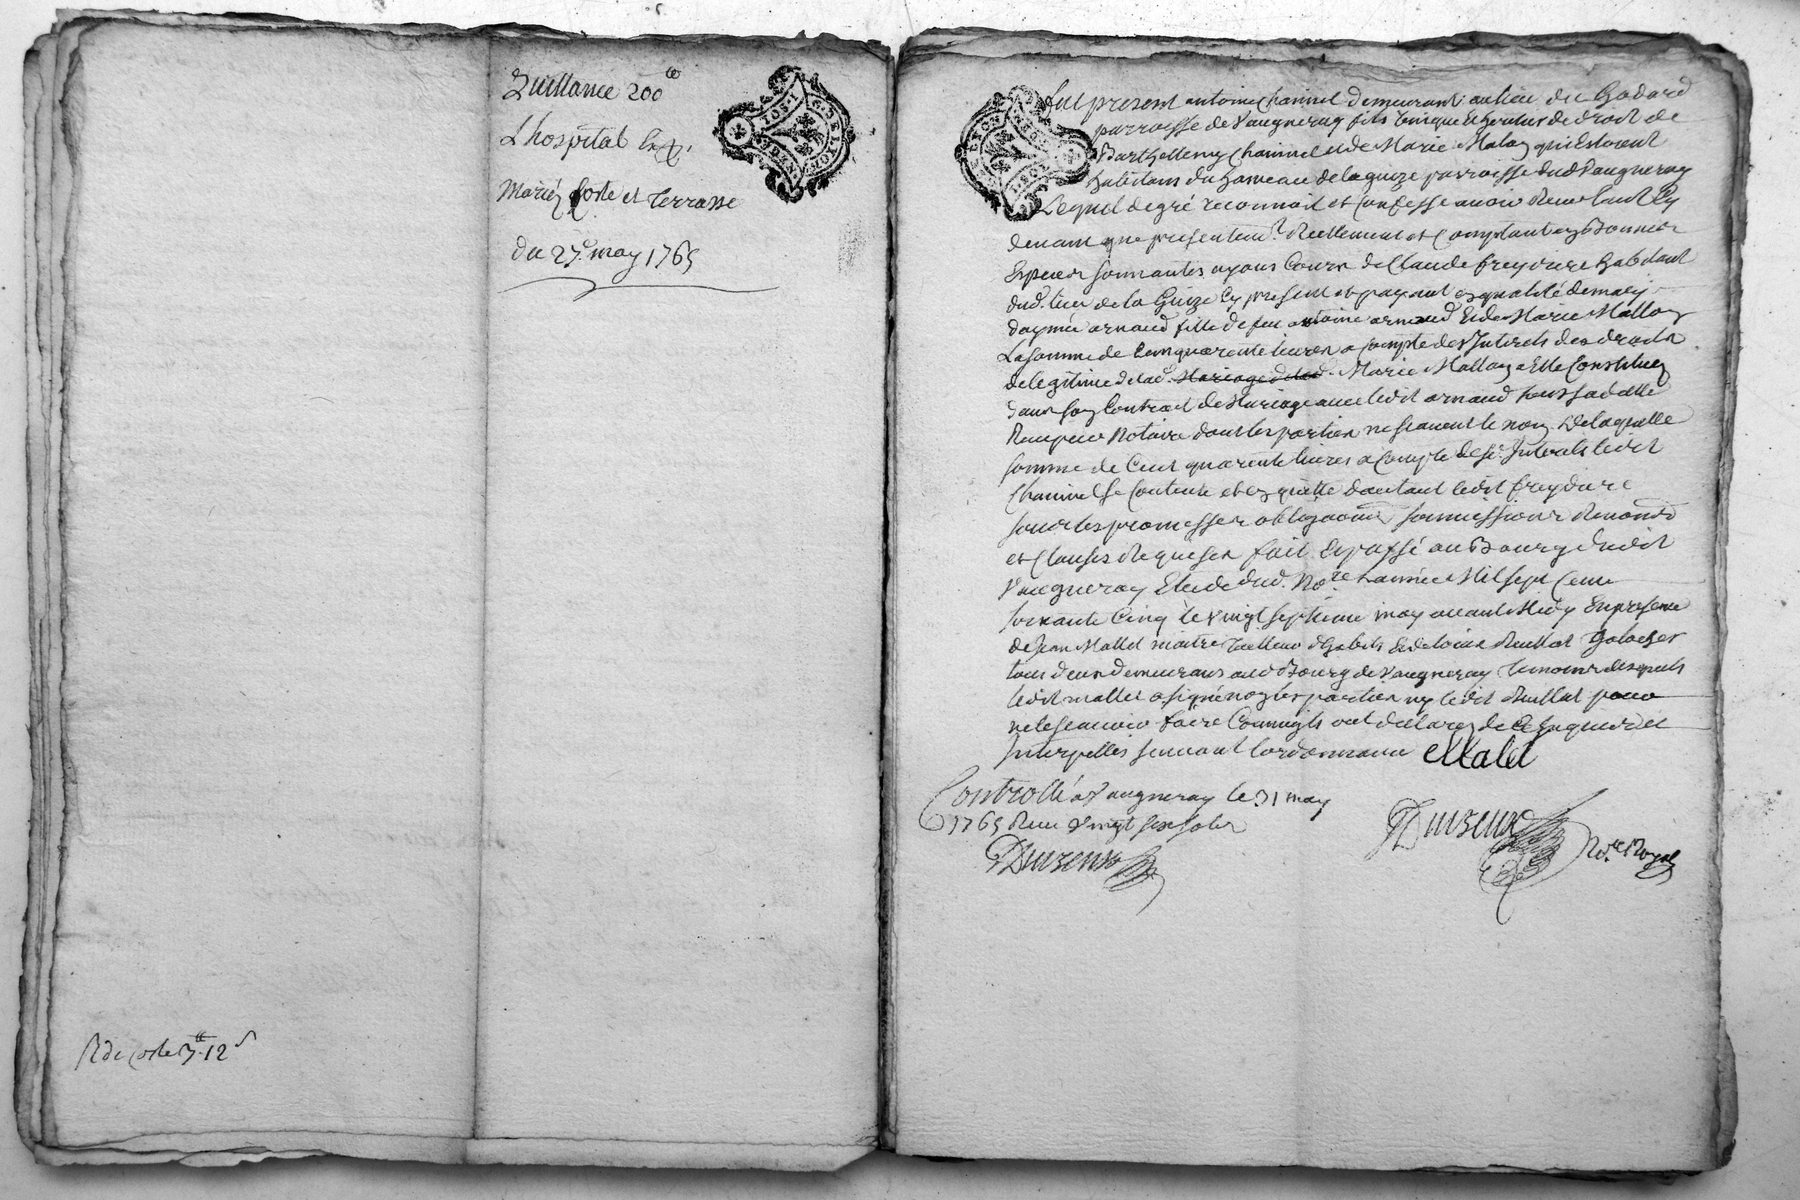 Quittance 200 lt
L'hospital
mariéz Coste et Terrasse
du 27e may 1765
R de Coste 3 lt 12 s
GEN DE LYON
1 SOL
GEN DE LYON
1 SOL
fut present antoine Chainel demeurant au lieu du Godard
parroisse de Vaugneray fils unique et heritier de droit de
Barthellemy Chainel et de Marie Malay qui Estoient
habitans du hameau de la guize parroisse dud Vaugneray
Lequel de gré reconnoit et Confesse avoir Receu
devant que presentemt. Reellement et Comptant en Bonnes
Especes sonnantes ayans Cours de Claude freydiere habitant
dud. lieu de la Guize Cy present et payant en qualité de mary
daymée arnaud fille de feu antoine arnaud Et de Marie Mallay
La somme de Cent quarente livres a Compte des Interets des droits
de legitime de lad. Mariage de lad. Marie Mallay a Elle Constitués
dans son Contract de Mariage avec ledit arnaud
Receu par Notaire dont les parties ne scavent le nom De laquelle
somme de Cent quarente livres a Compte desd. Interets ledit
Chainel se Contente et en quitte dautant ledit freydiere
sous les promesses obligaons soumissions Renonons
et Clauses Requises fait Et passé au Bourg dudit
Vaugneray Etude dud. Nore Lannée Mil sept Cent
soixante Cinq le vingt septieme may avant Midy En presence
de Jean Mallet maitre Tailleur d'habits Et de Louis Rullat
tous deux demeurans aud Bourg de Vaugneray Temoins desquels
ledit mallet a signé non les parties ny ledit Rullat pour
ne le scavoir faire Comm'ils ont declarez de ce Enquis et
Interpellés suivant lordonnance Malet
Controllé a Vaugneray le 31 may
1765 Receu vingt six sols
Duizeux
Duizeux Nore Royal